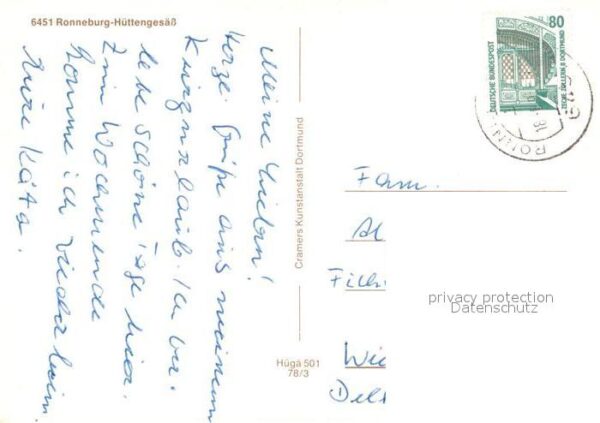 6451 Ronneburg-Hüttengesäß
Meine Lieben!
Herzl. Grüße aus meinem
Kurzurlaub. Ich ver-
lebe schöne Tage hier.
Zum Wochenende
komme ich wieder heim.
Eure Käta.
Cramers Kunstanstalt Dortmund
Hügä 501
78/3
80
DEUTSCHE BUNDESPOST
ZECHE ZOLLERN II DORTMUND
RONN
Fam.
Al
Wie
privacy protection
Datenschutz